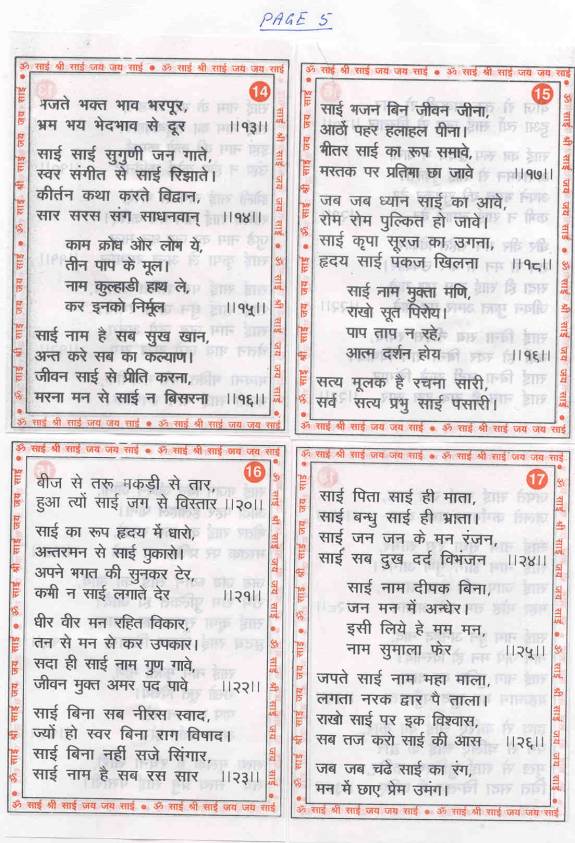 PAGE 5
ॐ साई श्री साई जय जय साई • ॐ साई श्री साई जय जय साई
14
भजते भक्त भाव भरपूर,
भ्रम भय भेदभाव से दूर ।।१३।।
साई साई सुगुणी जन गाते,
स्वर संगीत से साई रिझाते।
कीर्तन कथा करते विद्वान,
सार सरस संग साधनवान् ।।१४।।
काम क्रोध और लोभ ये,
तीन पाप के मूल।
नाम कुल्हाडी हाथ ले,
कर इनको निर्मूल ।।१५।।
साई नाम है सब सुख खान,
अन्त करे सब का कल्याण।
जीवन साई से प्रीति करना,
मरना मन से साई न बिसरना ।।१६।।
ॐ साई श्री साई जय जय साई • ॐ साई श्री साई जय जय साई
ॐ साई श्री साई जय जय साई • ॐ साई श्री साई जय जय साई
15
साई भजन बिन जीवन जीना,
आठों पहर हलाहल पीना।
भीतर साई का रूप समावे,
मस्तक पर प्रतिमा छा जावे ।।१७।।
जब जब ध्यान साई को आवे,
रोम रोम पुल्कित हो जावे।
साई कृपा सूरज का उगना,
हृदय साई पकज खिलना ।।१८।।
साई नाम मुक्ता मणि,
राखो सूत पिरोय।
पाप ताप न रहे,
आत्मा दर्शन होय ।।१६।।
सत्य मूलक है रचना सारी,
सर्व सत्य प्रभु साई पसारी।
ॐ साई श्री साई जय जय साई • ॐ साई श्री साई जय जय साई
ॐ साई श्री साई जय जय साई • ॐ साई श्री साई जय जय साई
16
बीज से तरू मकड़ी से तार,
हुआ त्यों साई जग से विस्तार ।।२०।।
साई का रूप हृदय में धारो,
अन्तरमन से साई पुकारो।
अपने भगत की सुनकर टेर,
कभी न साई लगाते देर ।।२१।।
धीर वीर मन रहित विकार,
तन से मन से कर उपकार।
सदा ही साई नाम गुण गावे,
जीवन मुक्त अमर पद पावे ।।२२।।
साई बिना सब नीरस स्वाद,
ज्यों हो स्वर बिना राग विषाद।
साई बिना नहीं सजे सिंगार,
साई नाम है सब रस सार ।।२३।।
ॐ साई श्री साई जय जय साई • ॐ साई श्री साई जय जय साई
ॐ साई श्री साई जय जय साई • ॐ साई श्री साई जय जय साई
17
साई पिता साई ही माता,
साई बन्धु साई ही भ्राता।
साई जन जन के मन रंजन,
साई सब दुख दर्द विभंजन ।।२४।।
साई नाम दीपक बिना,
जन मन में अन्धेर।
इसी लिये हे मम मन,
नाम सुमाला फेर ।।२५।।
जपते साई नाम महा माला,
लगता नरक द्वार पै ताला।
राखो साई पर इक विश्वास,
सब तज करो साई की आस ।।२६।।
जब जब चढे साई का रंग,
मन में छाए प्रेम उमंग।
ॐ साई श्री साई जय जय साई • ॐ साई श्री साई जय जय साई